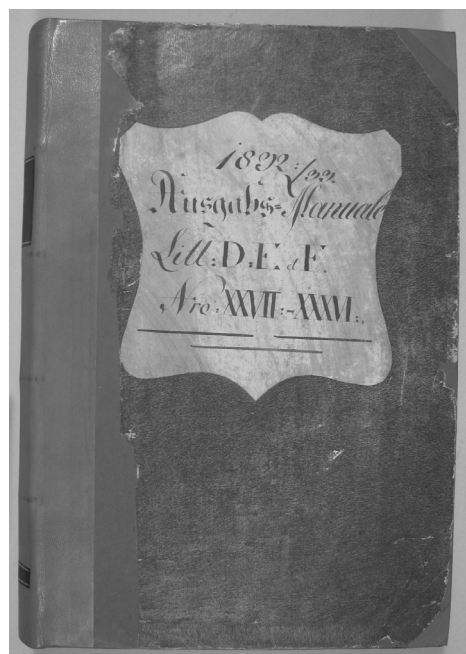 1832/33.
Ausgabs=Manuale
Litt: D. E. et F.
Nro: XXVII:-XXXVI:.